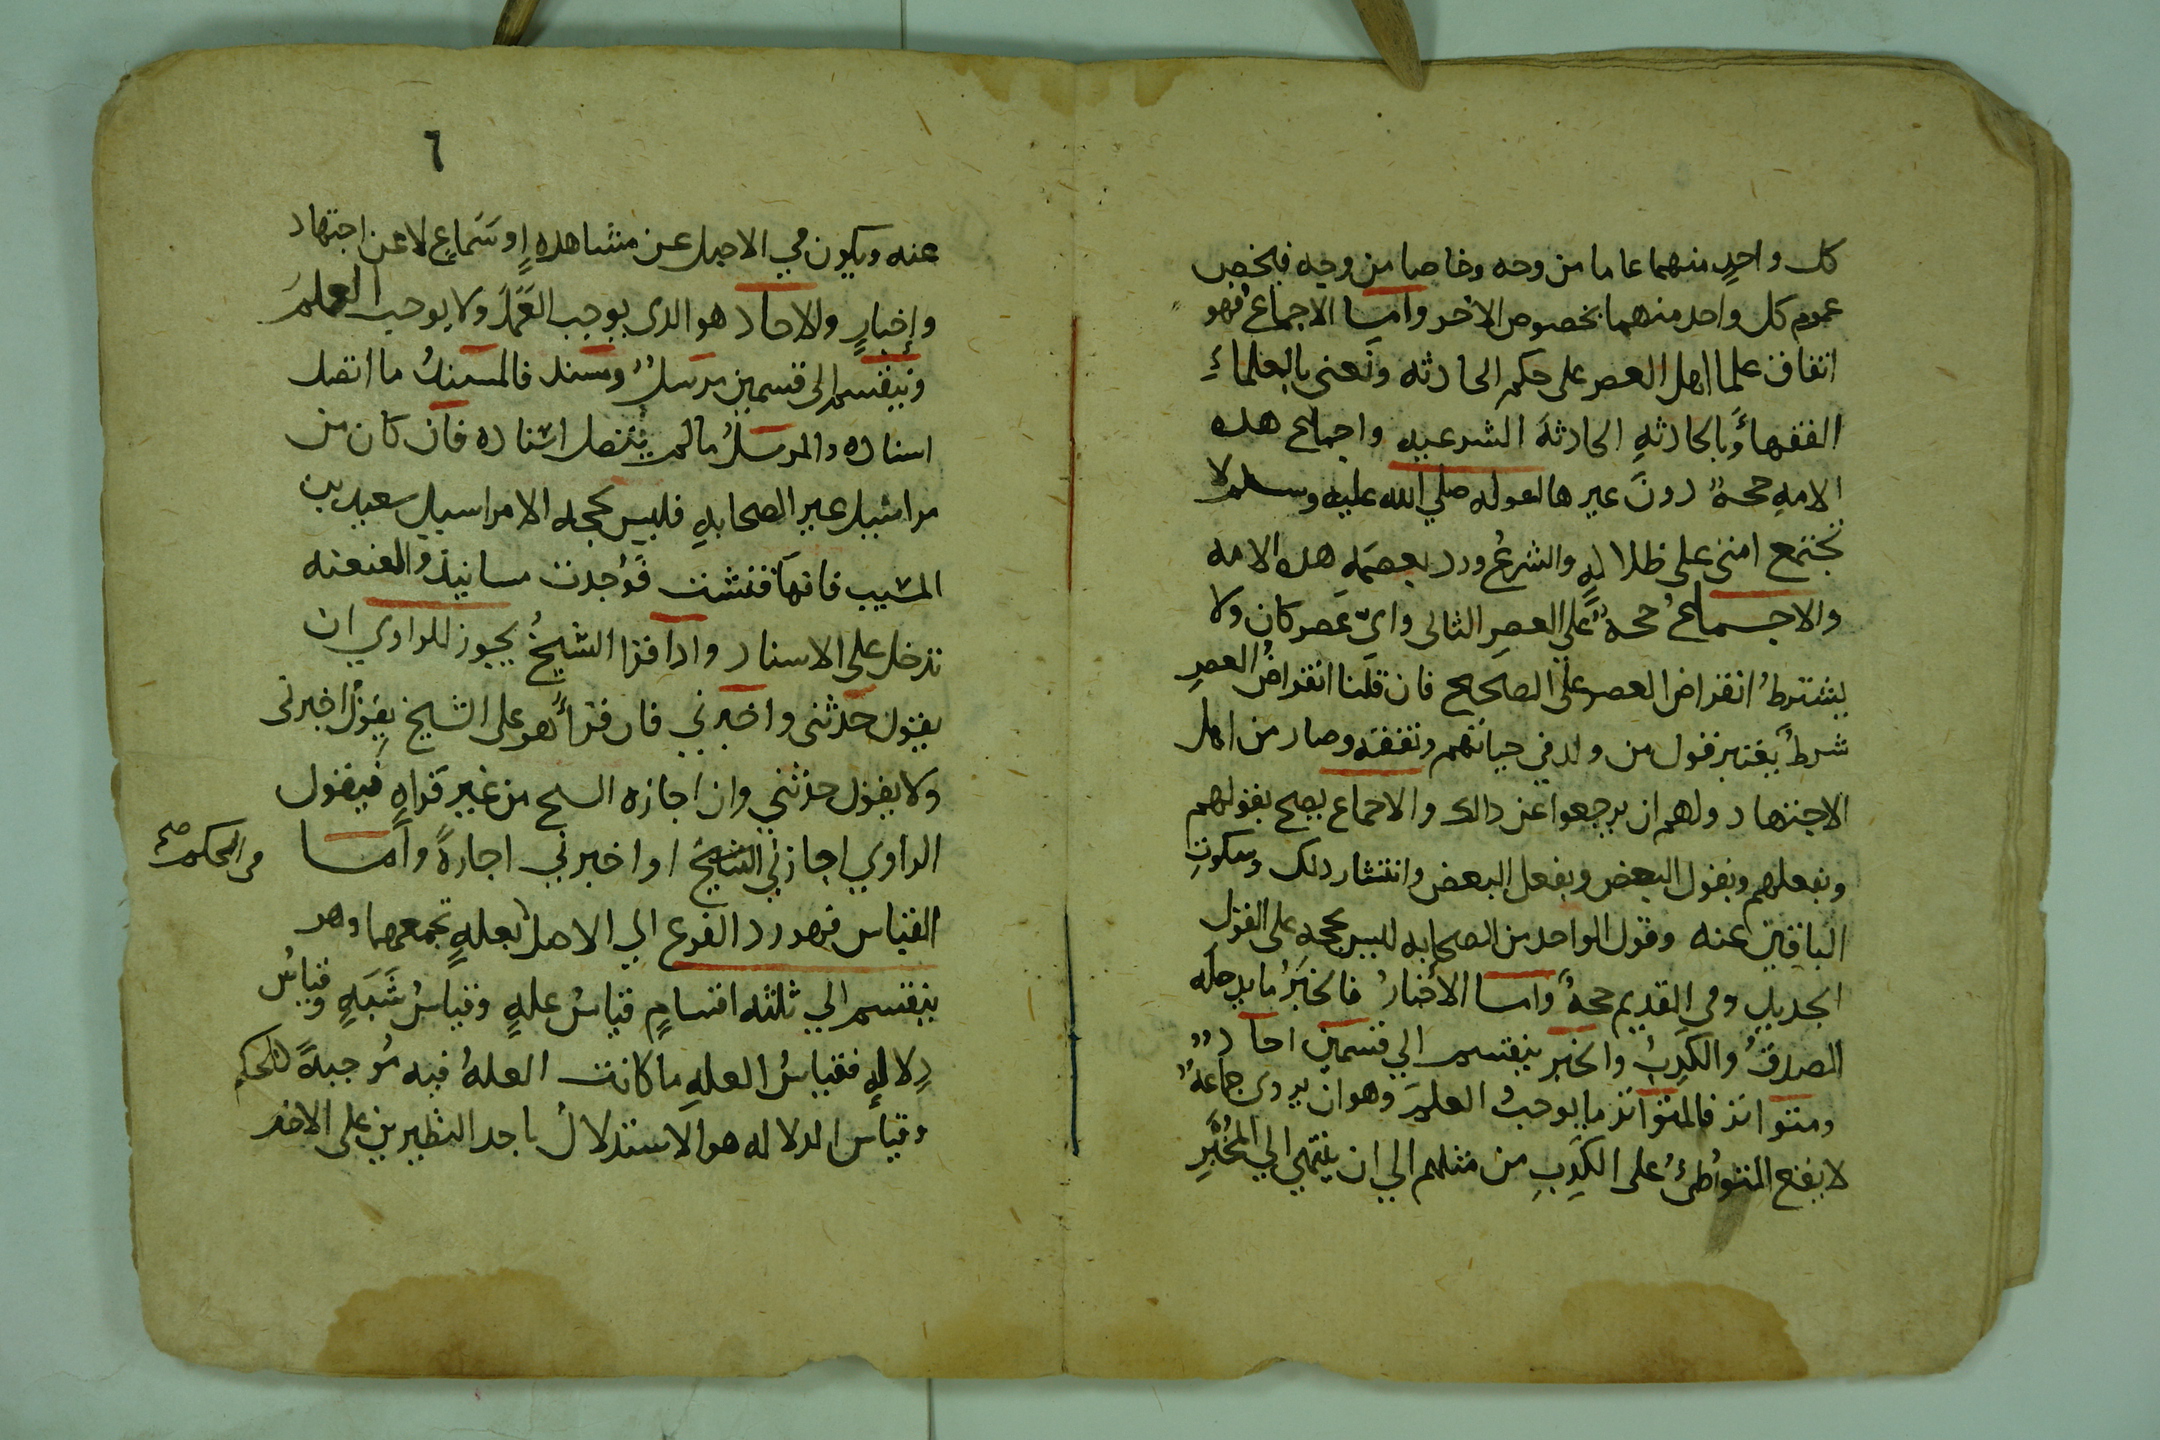 كل واحدٍ منهما عاما من وجه وخاصا من وجه فيخص
عموم كل واحد منهما بخصوص الاخر وأما الاجماعُ فهو
اتفاق علما اهل العصر على حكم الحادثه ونَعنى بالعلماءِ
الفقهاءَ وبالحادثهِ الحادثهَ الشرعيه واجماع هذه
الامهِ حجهٌ دونَ غيرها لقوله صلي الله عليه وسلم لا
تجتمع امتى على ظلالهٍ والشرعُ ورد بعصمَه هذه الامه
والاجماعُ حجهٌ على العصرِ الثانى وايِّ عَصر كان ولا
يشترطُ انقراض العصر على الصحيح فان قلنا انقراضُ العصرِ
شرطٌ يعَتبر قول من ولد في حياتهم وتفقه وصار من اهل
الاجتهاد ولهم ان يرجعوا عن دالك والاجماع يصح بقولهم
وبفعلهم وبقول البعض وبفعل البعض وانتشار دلك وسكوتِ
الباقين عنه وقول الواحد من الصحابه ليس بحجه على القول
الجديدِ وفى القديم حجهٌ وأما الأخبارُ فالخبَرُ ما يدخله
الصدقُ والكَدِبُ والخبر ينقسم الي قسمين احادٌ
ومتواتر فالمتواتر ما يوجبُ العلمَ وهو ان يروى جماعهٌ
لا يقع التواطئُ على الكَدِبِ من مثلهم الي ان ينتهي الي المُخبَرِ
٦
عنه ويكون في الاصل عن مشاهدهٍ او سَماعٍ لا عن اجتهاد
وإخبارٍ والاحاد هو الدى يوجب العَمَلَ ولا يوجب العلمَ
وينقسم الى قسمين مرسلٌ ومسند فالمسندُ ما اتصل
اسناده والمرسَلُ ما لم يتصل اسناده فان كان من
مراسيل غير الصحابهِ فليس بحجه الا مراسيل سعيد بن
المسيب فانهَا فتشت فوُجدت مسانيدَ والعنعنه
تدخل على الاسناد وادا قرا الشيخُ يجوز للراوي ان
يقول حدثنى واخبرني فان قرأ هو على الشيخ يقولُ اخبرنى
ولا يقول حدثني وان اجازه الشيخ من غير قراهٍ فيقول
الراوي اجازني الشيخُ او اخبرني اجازةً وأما
القياس فهو رد الفرع الي الاصل بعلهٍ تجمعهما وهو
فى الحكم صح
ينقسم الي ثلثه اقسامٍ قياسُ علهٍ وقياسُ شَبَهٍ وقياسُ
دِلالهٍ فقياسُ العلهِ ما كانت العلهُ فيه مُوجبةً للحكم
وقياس الدلاله هو الاستدلالُ باحد النظيرين على الاخر